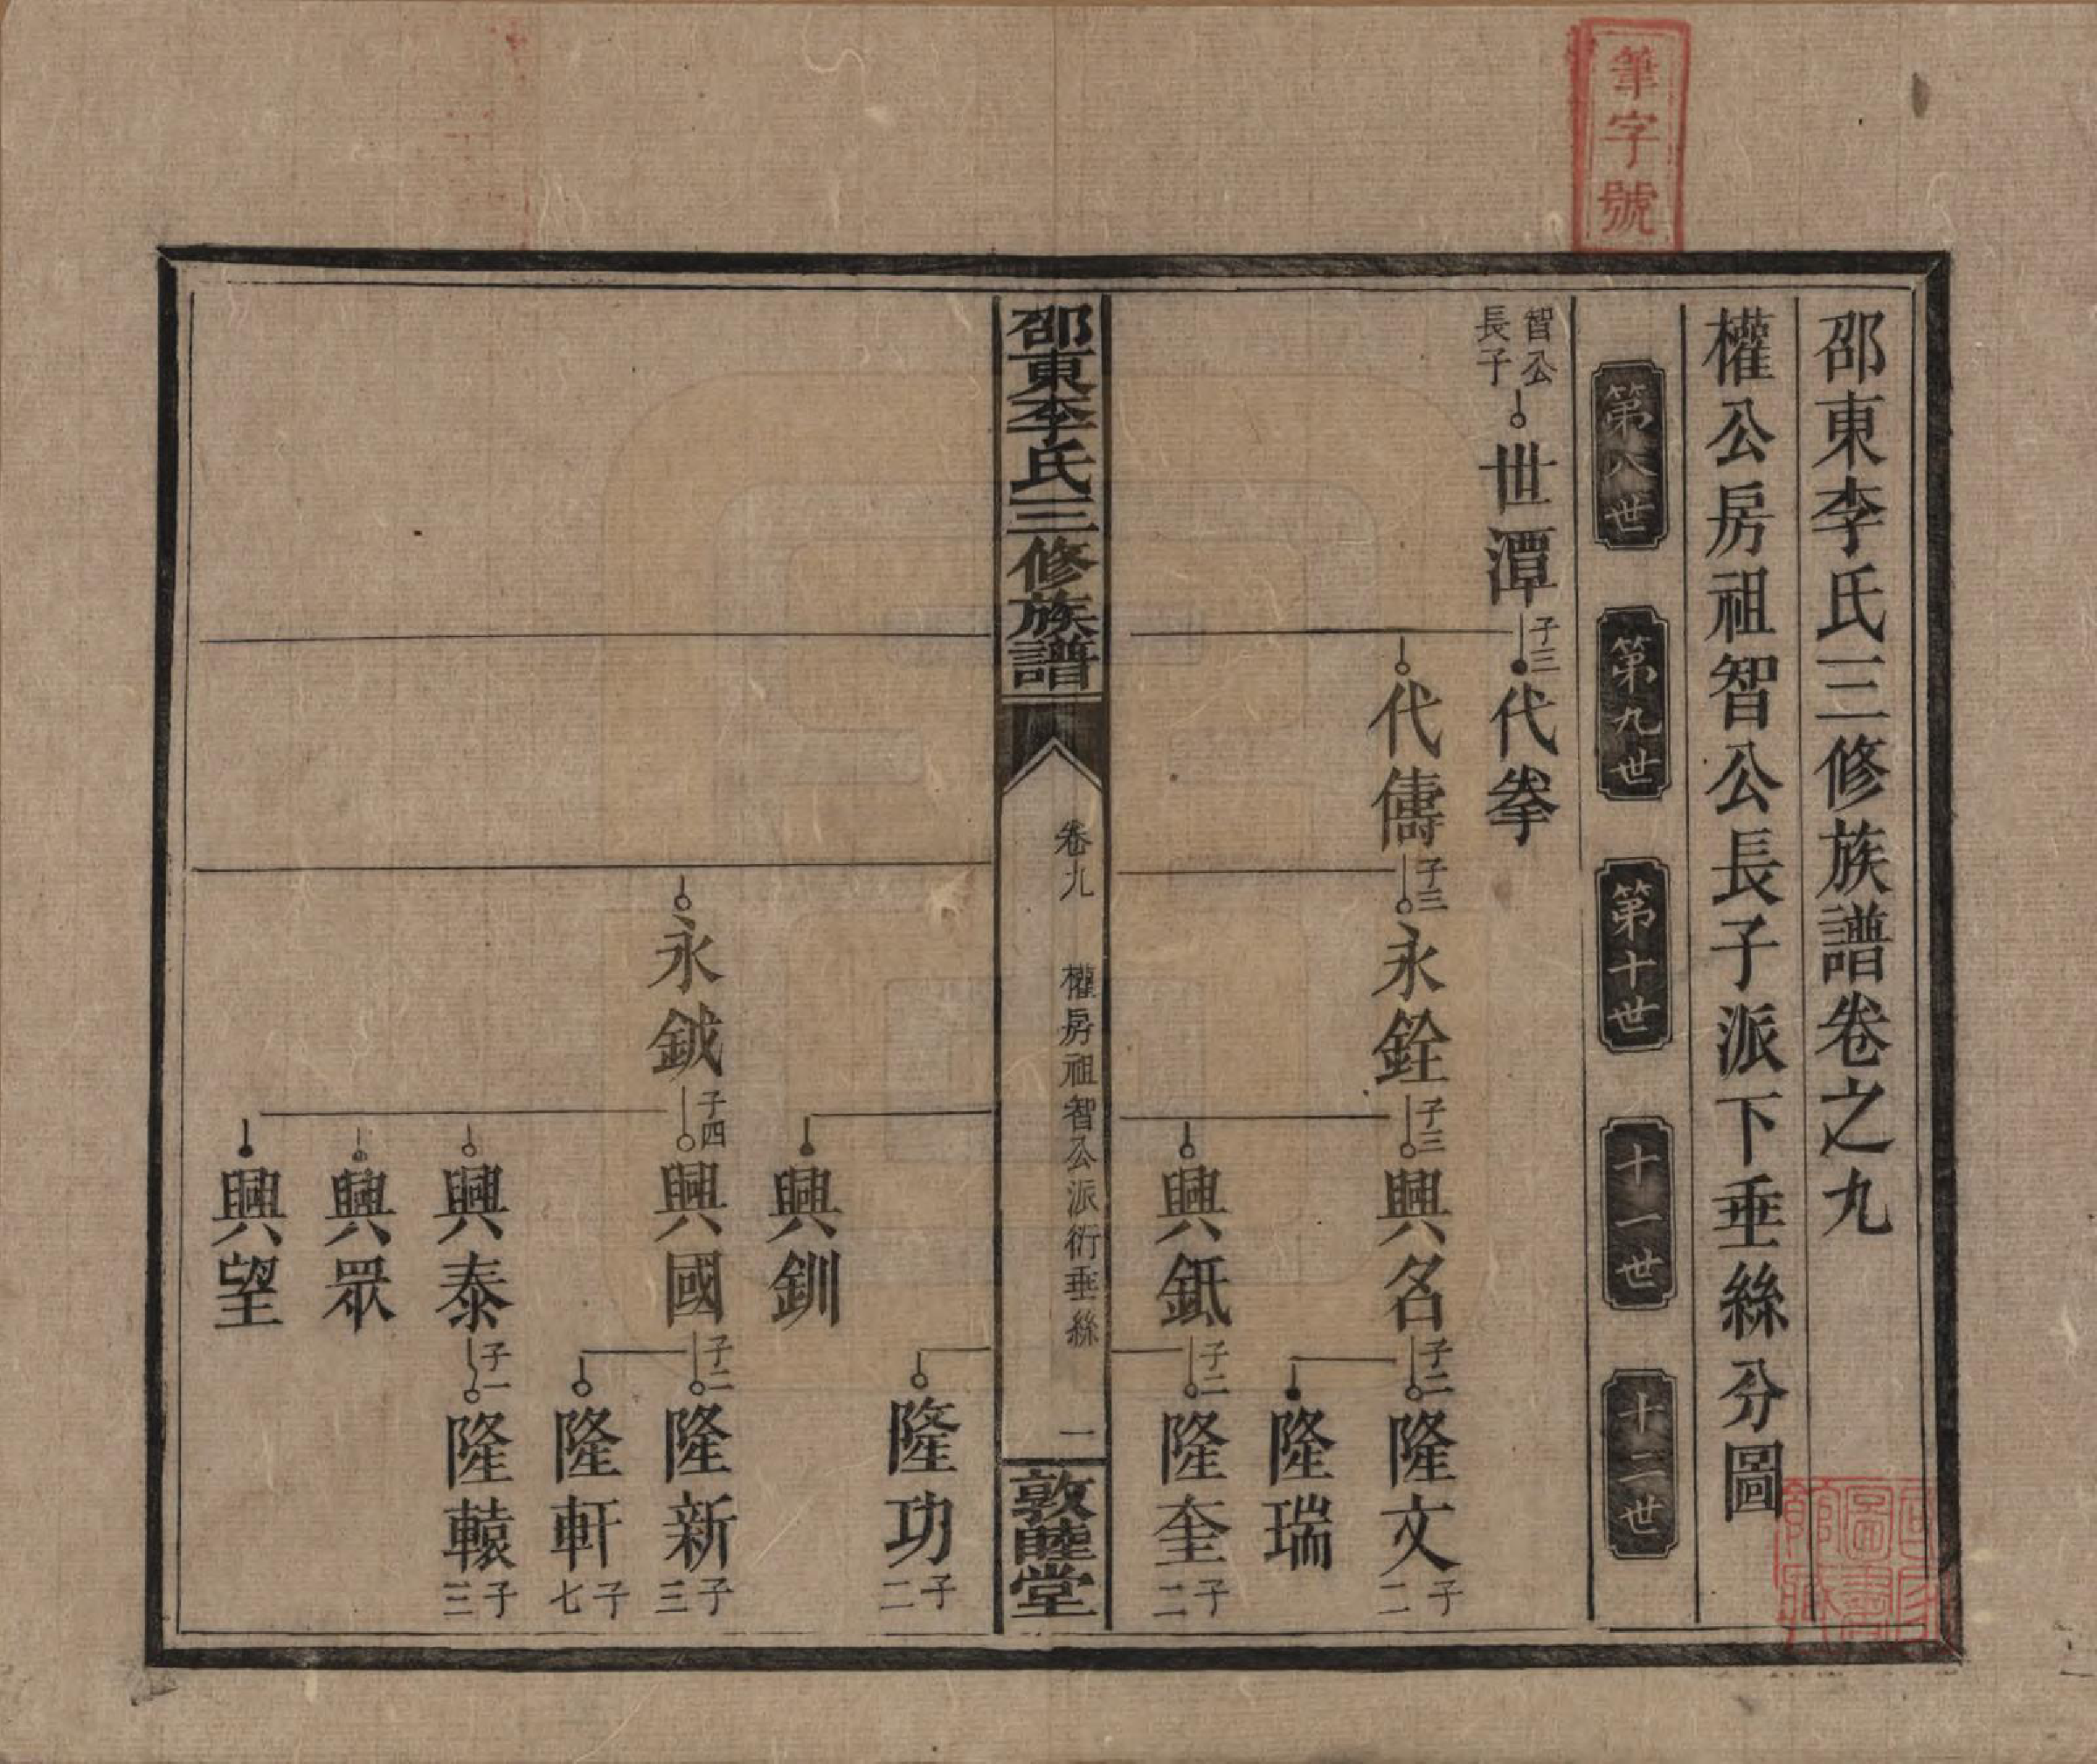 筆字號
邵東李氏三修族譜卷之九
權公房祖智公長子派下垂絲分圖
第八世
第九世
第十世
十一世
十二世
智公
長子
世潭
子三
代拳
代儔
子三
永銓
子三
興名
子二
隆文
子二
隆瑞
興鈺
子二
隆奎
子二
邵東李氏三修族譜
卷九
權房祖智公派衍垂絲
一
敦睦堂
隆功
子二
興釧
永鉞
子四
興國
子二
隆新
子三
隆軒
子七
興泰
子一
隆轅
子三
興眾
興望